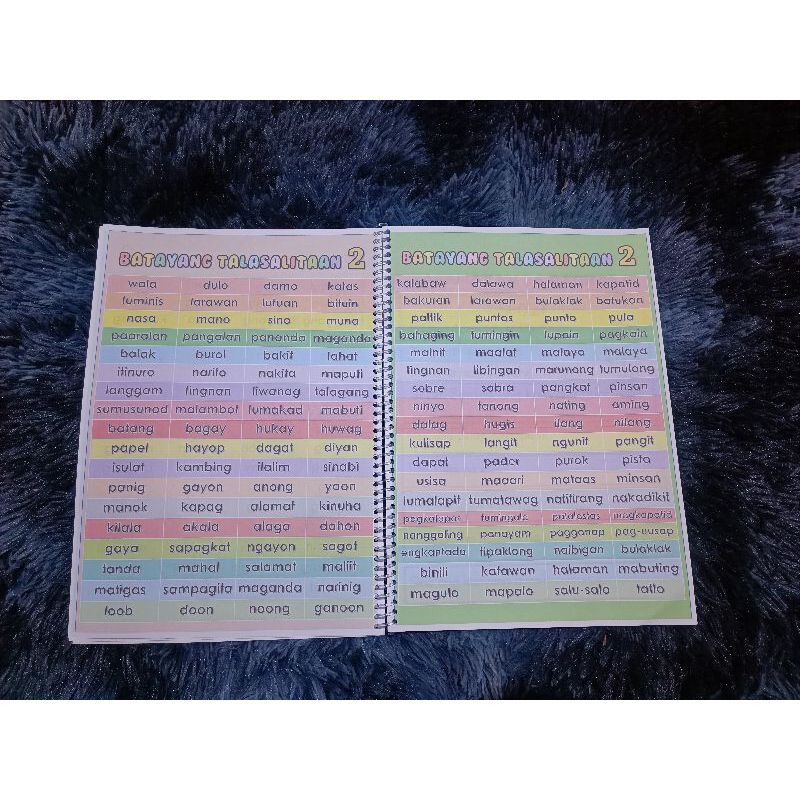 BATAYANG TALASALITAAN 2
wala dulo damo kalas
tuminis larawan lutuan bituin
nasa mano sino muna
paaralan pangalan pananda maganda
balak burol bakit lahat
itinuro narito nakita maputi
langgam tingnan liwanag talagang
sumusunod malambot lumakad mabuti
batang bagay hukay huwag
papel hayop dagat diyan
isulat kambing italim sinabi
panig gayon anong yaon
manok kapag alamat kinuha
kilala akala alaga dahon
gaya sapagkat ngayon sagot
tanda mahal salamat maliit
matigas sampagita maganda narinig
loob doon noong ganoon
BATAYANG TALASALITAAN 2
kalabaw dalawa halaman kapatid
bakuran larawan bulaklak batukan
putik puntos punto pula
bahaging tumingin lupain pagkain
mainit maalat malaya malaya
tingnan libingan marunong tumulong
sobre sobra pangkat pinsan
ninyo tanong nating aming
dalag hugis ilang nilang
kulisap langit ngunit pangit
dapat pader purok pista
usisa maaari mataas minsan
lumalapit tumatawag natitirang nakadikit
magkapatid
nanggaling panayam pagganap pag-uusap
engkantada tipaklong naibigan bulaklak
binili katawan halaman mabuting
magulo mapalo salu-salo tatlo